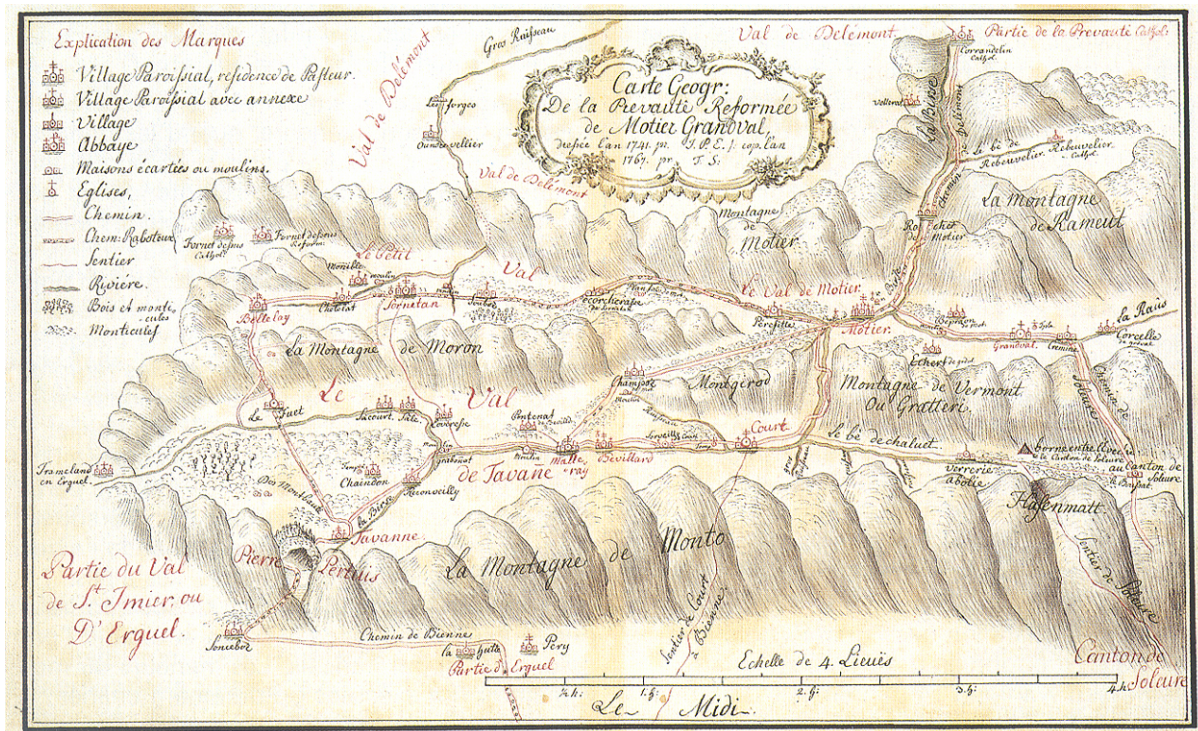 Explication des Marques
Village Paroissial, résidence de Pasteur.
Village Paroissial avec annexe
Village
Abbaye
Maisons écartées ou moulins.
Eglises,
Chemin.
Chem: Raboteux
Sentier
Rivière.
Bois et monticules
Monticules
Carte Geogr:
De la Prevauté Reformée
de Motier Grandval,
dresée l'an 1741. pr. J.P.E.
cop. l'an 1767. pr T. S:
Val de Delémont
Gros Raisseau
Les forges
Oundervellier
Val de Delémont
Val de Delémont
Partie de la Prevauté Cathol:
Corrandelin
Cathol.
Vellerat
La Birse
Chemin de Delémont
Le bé de Rebeuvelier
Rebeuvelier
Cathol.
La Montagne
de Rameut
Montagne
de
Motier
Rocher
de Motier
Fornet dessus
Cathol.
Fornet dessous
Reform.
Le Petit
Val
Monible
moulin
Bellelay
Chatelat
Sornetan
Soubox
ecorcheresse
Le Val de Motier
La Birse
Perefitte
Motier
Belpraon
Echert
Grandval
Cremine
Corcelle
La Raüs
La Montagne de Moron
Champoz
Moulin
Montgirod
Montagne de Vermont
Ou Gratteri
Chemin de Soleure
Le
Val
de Tavane
Le Fuet
Sicourt
Sale
Loveresse
Pontenat
Moulin
Malleray
Bévillard
Sorvellié
Court
Le bé de chaluet
Verrerie
abolie
borne entre l'Eve
et le Canton de Soleure
au Canton de
Soleure
Hasenmatt
Sentier de Soleure
Trameland
en Erguel
Chaindon
Reconveilly
la Birse
Tavanne
Pierre
Pertuis
La Montagne de Monto
Partie du Val
de St. Imier, ou
D'Erguel.
Soncebox
Chemin de Bienne
la hutte
Pery
Partie d'Erguel
Sentier de Court
à Bienne
Echelle de 4. Lieuës
½ h:
1. h:
2. h:
3. h:
4 h.
Canton de
Soleure
Le Midi.